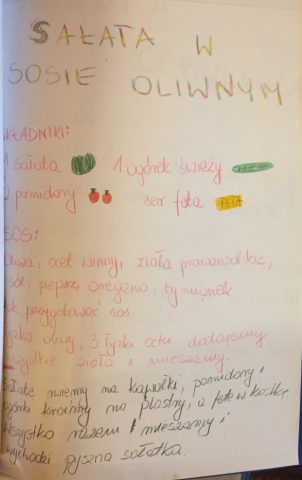 SAŁATA W
SOSIE OLIWNYM
SKŁADNIKI:
1 sałata 1 ogórek świeży
2 pomidory ser feta FETA
SOS:
oliwa, ocet winny, zioła prowansalskie,
sól, pieprz, oregano, tymianek
Jak przygotować sos.
łyżka oliwy, 3 łyżki octu dodajemy
wszystkie zioła i mieszamy.
Sałatę rwiemy na kawałki, pomidory i
ogórki kroimy na plastry, a fetę w kostkę
Wszystko razem mieszamy i
wychodzi pyszna sałatka.